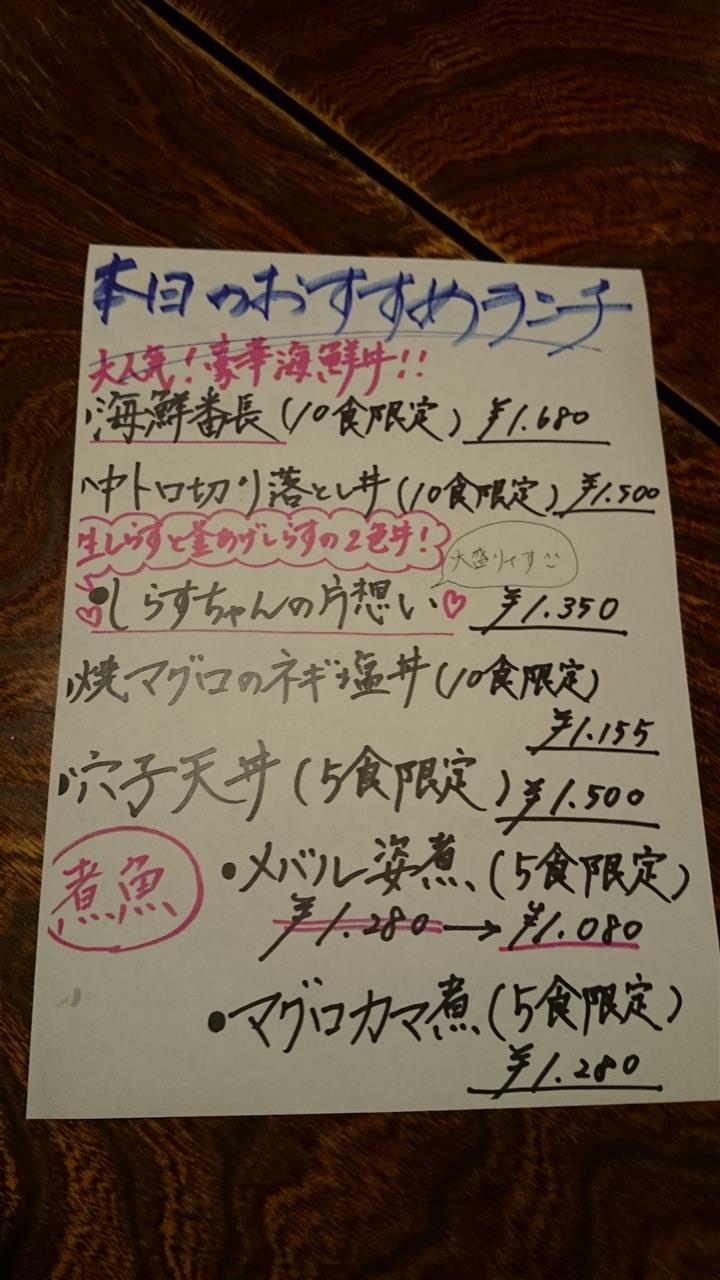 本日のおすすめランチ
大人気!豪華海鮮丼!!
・海鮮番長(10食限定) ¥1.680
・中トロ切り落とし丼(10食限定) ¥1.500
生しらすと釜あげしらすの2色丼!
大盛りです
・しらすちゃんの片想い♡ ¥1.350
・焼マグロのネギ塩丼(10食限定)
¥1.155
・穴子天丼(5食限定) ¥1.500
煮魚
・メバル姿煮(5食限定)
¥1.280→¥1.080
・マグロカマ煮(5食限定)
¥1.280